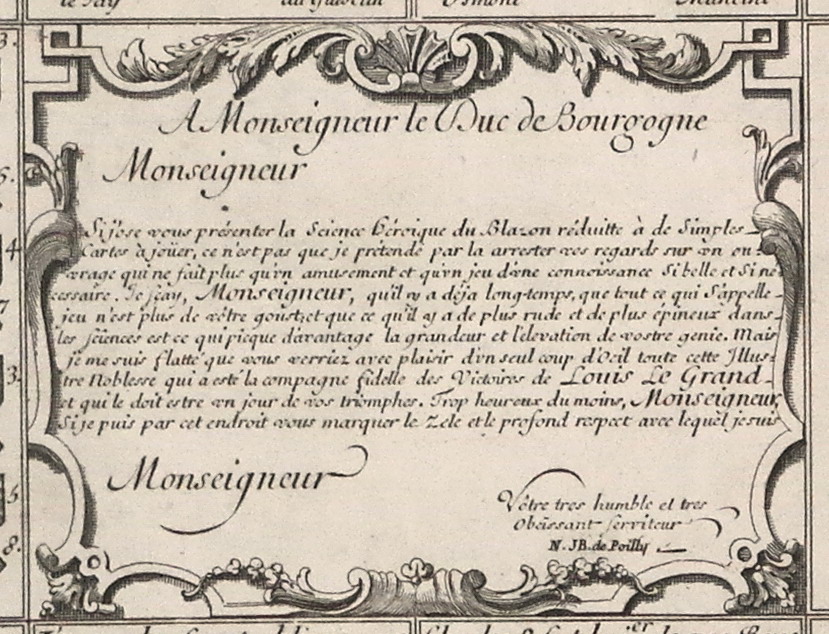 le Jay
Osmont
Mancini
A Monseigneur le Duc de Bourgogne
Monseigneur
Si j'ose vous présenter la Science héroique du Blazon réduitte à de Simples
Cartes à joüer, ce n'est pas que je prétende par la arrester vos regards sur vn ou-
vrage qui ne fait plus qu'vn amusement et qu'vn jeu d'vne connoissance Si belle et Si ne
cessaire. Je sçay, Monseigneur, qu'il ny a déja long-temps, que tout ce qui S'appelle
jeu n'est plus de vôtre goust, et que ce qu'il y a de plus rude et de plus épineux dans
les sciences est ce qui picque davantage la grandeur et l'elevation de vostre genie. Mais
je me suis flatté que vous verriez avec plaisir d'vn seul coup d'Oeil toute cette Illus-
tre Noblesse qui a esté la compagne fidelle des Victoires de Louis Le Grand
et qui le doit estre vn jour de vos triomphes. Trop heureux du moins, Monseigneur,
Si je puis par cet endroit vous marquer le Zele et le profond respect avec lequel je suis
Monseigneur
Vôtre tres humble et tres
Obeissant serviteur
N. JB. de Poilly
3.
5.
4
7
3.
5.
8.